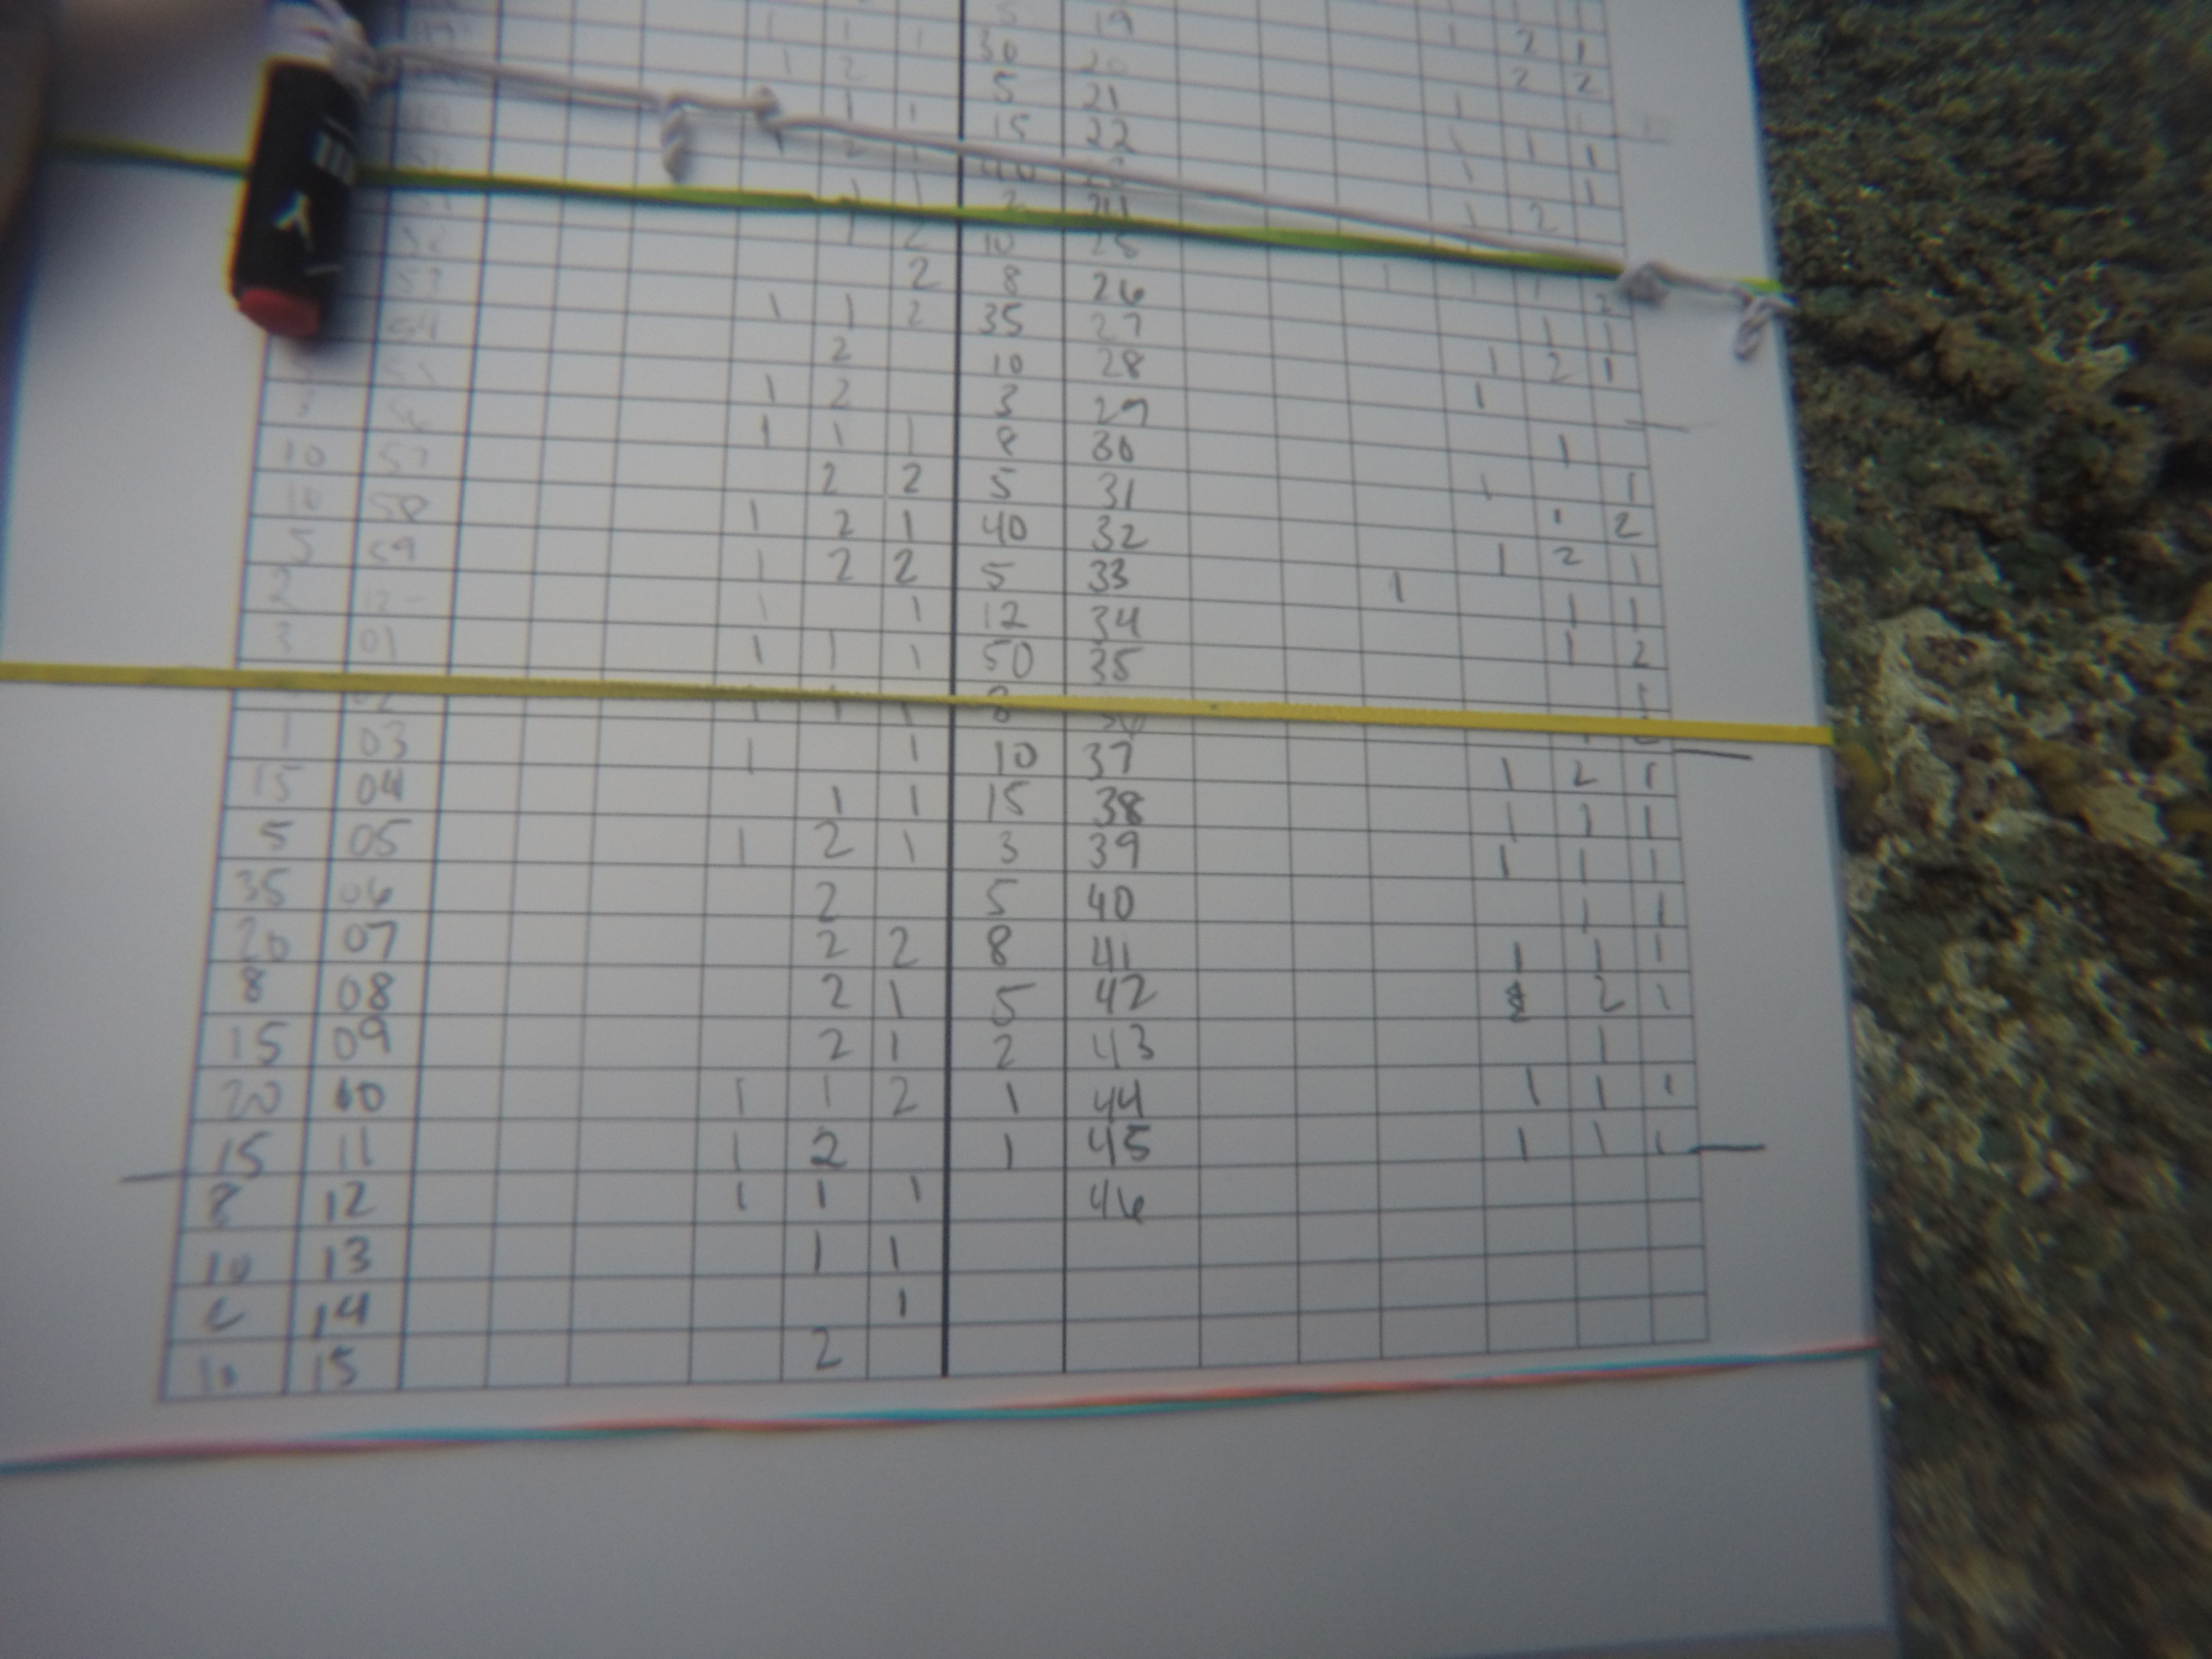 5 19 1 2 1
1 1 1 30 20 2 2
1 2 5 21 1
1 1 15 22 1 1 1
1 2
1 2 10 25
2 8 26 1 1 1 2
54 1 1 2 35 27 1 1
2 10 28 1 2 1
1 2 3 29 1
1 1 1 8 30 1
10 57 2 2 5 31 1 1
10 58 1 2 1 40 32 1 2
5 59 1 2 2 5 33 1 2 1
2 1 1 12 34 1 1 1
3 01 1 1 1 50 35 1 2
02 1 1 1 8 1
1 03 1 1 10 37 1 2 1
15 04 1 1 15 38 1 1 1
5 05 1 2 1 3 39 1 1 1
35 06 2 5 40 1 1
20 07 2 2 8 41 1 1 1
8 08 2 1 5 42 2 1
15 09 2 1 2 43 1
20 10 1 1 2 1 44 1 1 1
15 11 1 2 1 45 1 1 1
8 12 1 1 1 46
10 13 1 1
14 1
10 15 2